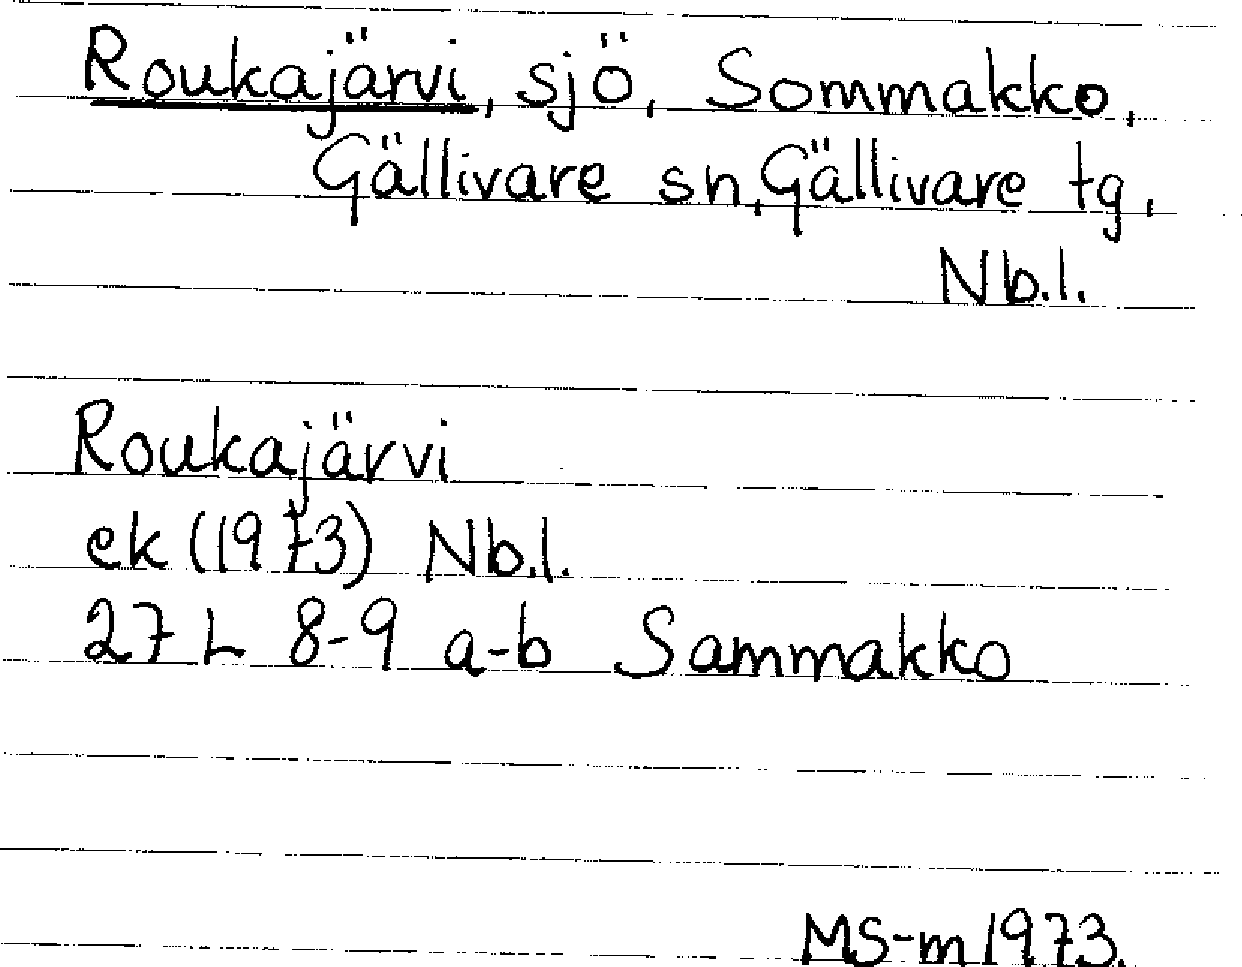 Roukajärvi, sjö, Sommakko,
Gällivare sn, Gällivare tg,
Nb.l.
Roukajärvi
ek (1973) Nb.l.
27 L 8-9 a-b Sammakko
MS-m 1973.